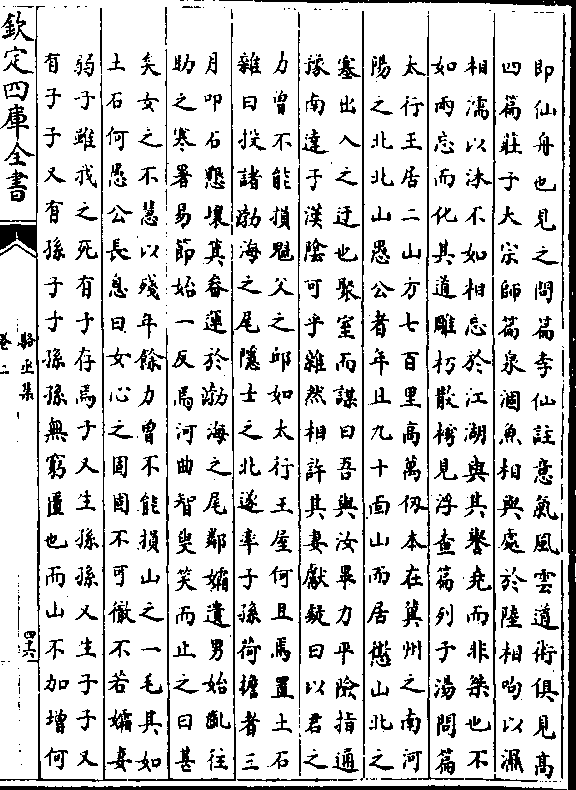 即仙舟也見之問篇寺仙註意氣風雲道術俱見高
四篇莊子大宗師篇泉涸魚相與處於陸相呴以濕
相濡以沫不如相忘於江湖與其譽堯而非桀也不
如兩忘而化其道雕朽散樗見浮查篇列子湯問篇
太行王居二山方七百里高萬仞本在冀州之南河
陽之北北山愚公者年且九十面山而居懲山北之
塞出入之迂也聚室而謀曰吾與汝畢力平險指通
豫南達于漢陰可乎雜然相許其妻獻疑曰以君之
力曾不能損魁父之邱如太行王屋何且焉置土石
雜曰投諸渤海之尾隱士之北遂率子孫荷擔者三
月叩石懇壤箕畚運於渤海之尾鄰孀遺男始齔往
助之寒暑易節始一反焉河曲智叟笑而止之曰甚
矣女之不慧以殘年餘力曾不能損山之一毛其如
土石何愚公長息曰女心之固固不可徹不若孀妻
弱子雖我之死有子存焉子又生孫孫又生子子又
有子子又有孫子子孫孫無窮匱也而山不加增何
欽定四庫全書
駱丞集
卷二